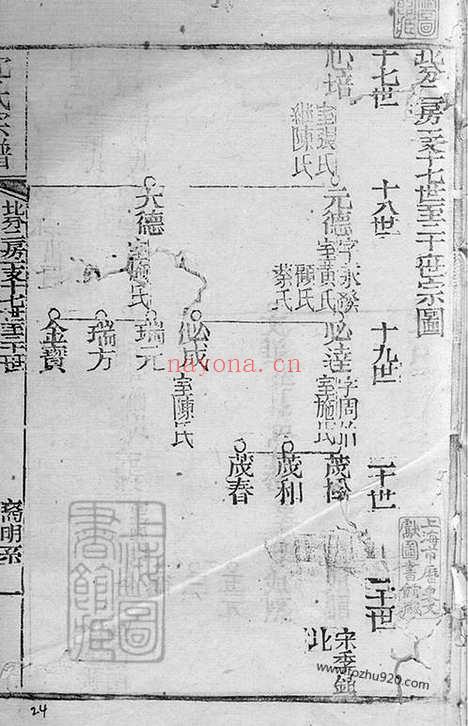 北分二房支十七世至二十世宗圖
十七世
十八世
十九世
二十世
二十一世
必培
室張氏
繼陳氏
元德
字永
室黃氏
顧氏
蔡氏
大德
室施氏
必達
字周
室施氏
必成
室陳氏
瑞元
瑞方
金寶
茂松
茂和
茂春
宋季
北
氏宗譜
北分二房支十七世至二十世
裔明系
上海市歷史文
獻圖書館藏
nayona.cn
www.fozhu920.com
24